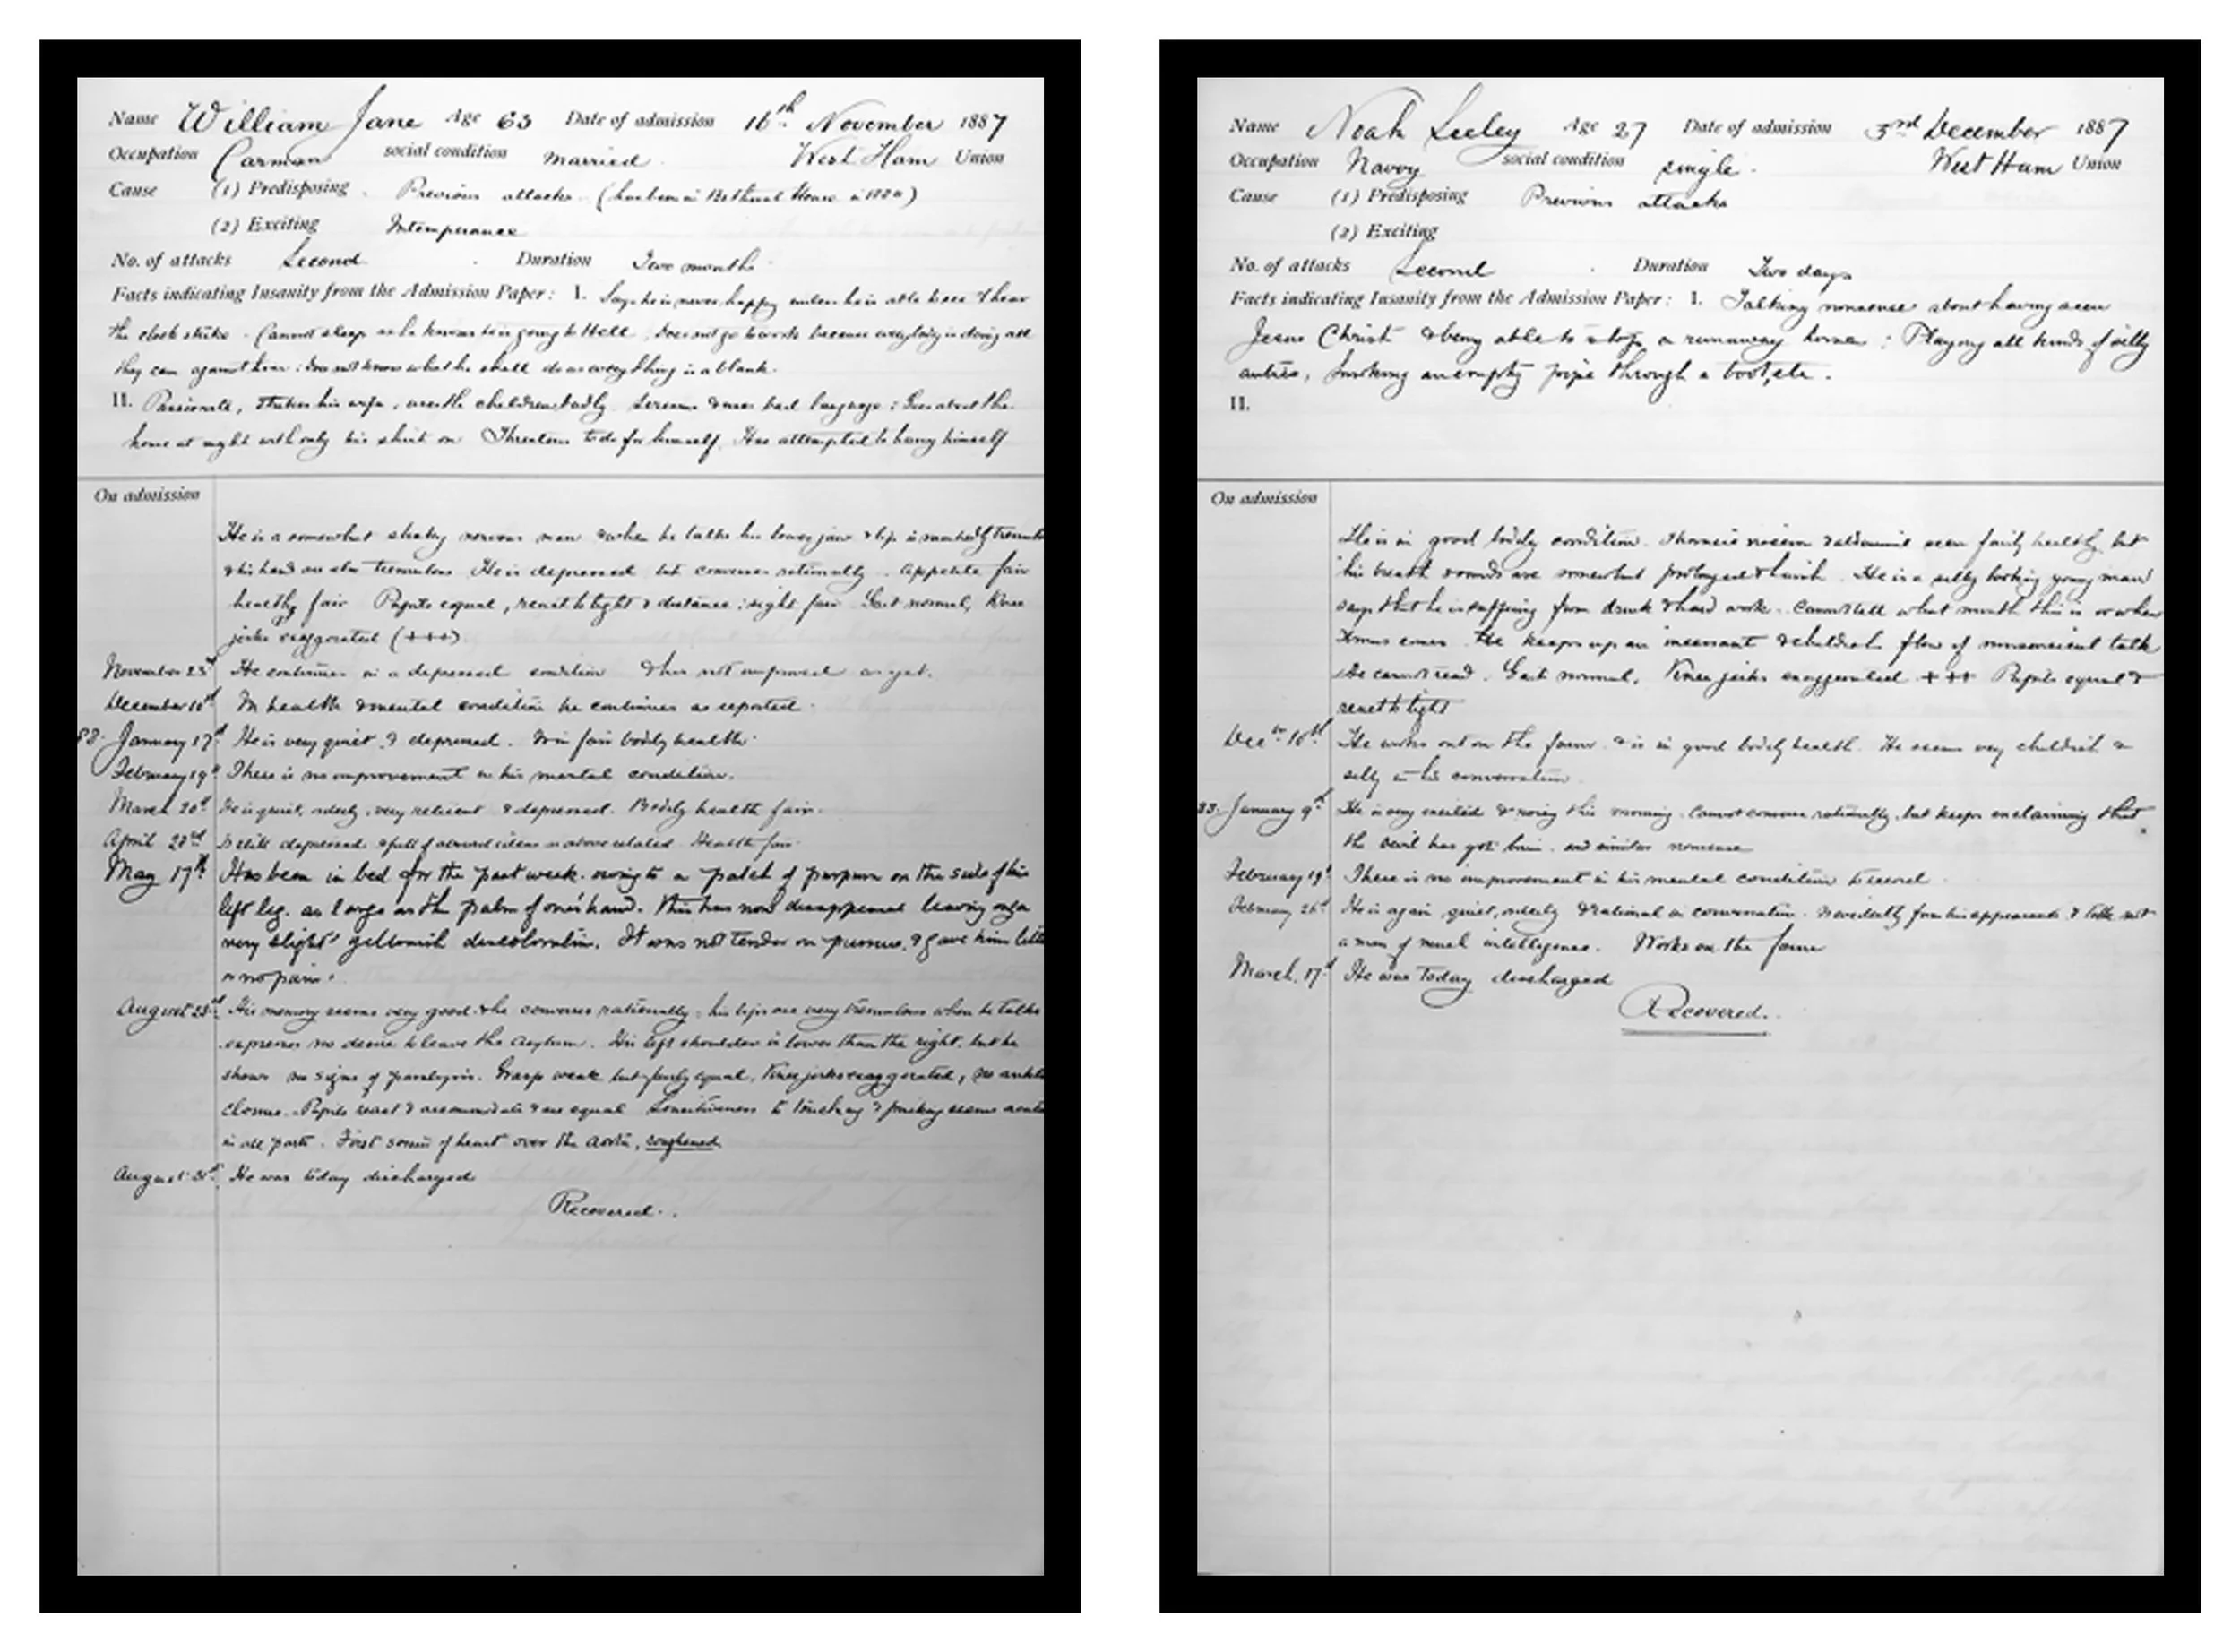 Name William Jane Age 63 Date of admission 16th November 1887
Occupation Carman social condition married West Ham Union
Cause (1) Predisposing Previous attacks (has been in Bethnal House in
(2) Exciting Intemperance
No. of attacks Second Duration Two months
Facts indicating Insanity from the Admission Paper: I. Says he is never happy unless he is able to see & hear
the clock strike. Cannot sleep as he knows he is going to Hell. Does not go to work because everybody is doing all
they can against him: does not know what he shall do as everything is a blank.
II. Passionate, strikes his wife, children badly screams & uses bad language: Goes about the
house at night with only his shirt on Threatens to do for himself. Has attempted to hang himself
On admission
He is a somewhat shaky nervous man & when he talks his lower jaw & lip is markedly
& his hands are also tremulous He is depressed but converses rationally. Appetite fair
health fair Pupils equal, react to light & distance: sight fair Gait normal, Knee
jerks exaggerated (+++)
November 23rd He continues in a depressed condition & has not improved as yet.
December 10th In health & mental condition he continues as reported.
88. January 17th He is very quiet & depressed. Is in fair bodily health.
February 19th There is no improvement in his mental condition.
March 20th He is quiet, orderly, very reticent & depressed. Bodily health fair.
April 22nd Is still depressed & full of absurd ideas as above stated. Health fair.
May 17th Has been in bed for the past week owing to a patch of purpura on the side of his
left leg. as large as the palm of one's hand. This has now disappeared leaving only a
very slight yellowish discoloration. It was not tender on pressure, & gave him little
or no pain.
August 23rd His memory seems very good & he converses rationally: his lips are very tremulous when he talks
expresses no desire to leave the asylum. His left shoulder is lower than the right, but he
shows no signs of paralysis. Grasp weak but fairly equal, Knee jerks exaggerated, no ankle
clonus. Pupils react & accommodate & are equal Sensitiveness to touching & pricking seems acute
in all parts. First sound of heart over the aorta, roughened
August 31st He was today discharged
Recovered.
Name Noah Seeley Age 27 Date of admission 3rd December 1887
Occupation Navvy social condition single. West Ham Union
Cause (1) Predisposing Previous attacks
(2) Exciting
No. of attacks Second Duration Two days
Facts indicating Insanity from the Admission Paper: I. Talking nonsense about having seen
Jesus Christ & being able to stop a runaway horse: Playing all kinds of silly
antics, smoking an empty pipe through a boot, etc.
II.
On admission
He is in good bodily condition. Thoracic viscera & abdominal seem fairly healthy but
his breath sounds are somewhat prolonged & harsh. He is a silly looking young man
says that he is suffering from drink & hard work. Cannot tell what month this is or when
Xmas comes. He keeps up an incessant & childish flow of nonsensical talk
He cannot read. Gait normal. Knee jerks exaggerated +++ Pupils equal &
react to light
Decbr 10th He works out on the farm & is in good bodily health. He seems very childish &
silly in his conversation.
88. January 9th He is very excited & noisy this morning. Cannot converse rationally, but keeps exclaiming that
the devil has got him. and similar nonsense
February 19th There is no improvement in his mental condition to record.
February 26th He is again quiet, orderly & rational in conversation. Is evidently from his appearance & talk not
a man of much intelligence. Works on the farm
March 17th He was today discharged
Recovered.